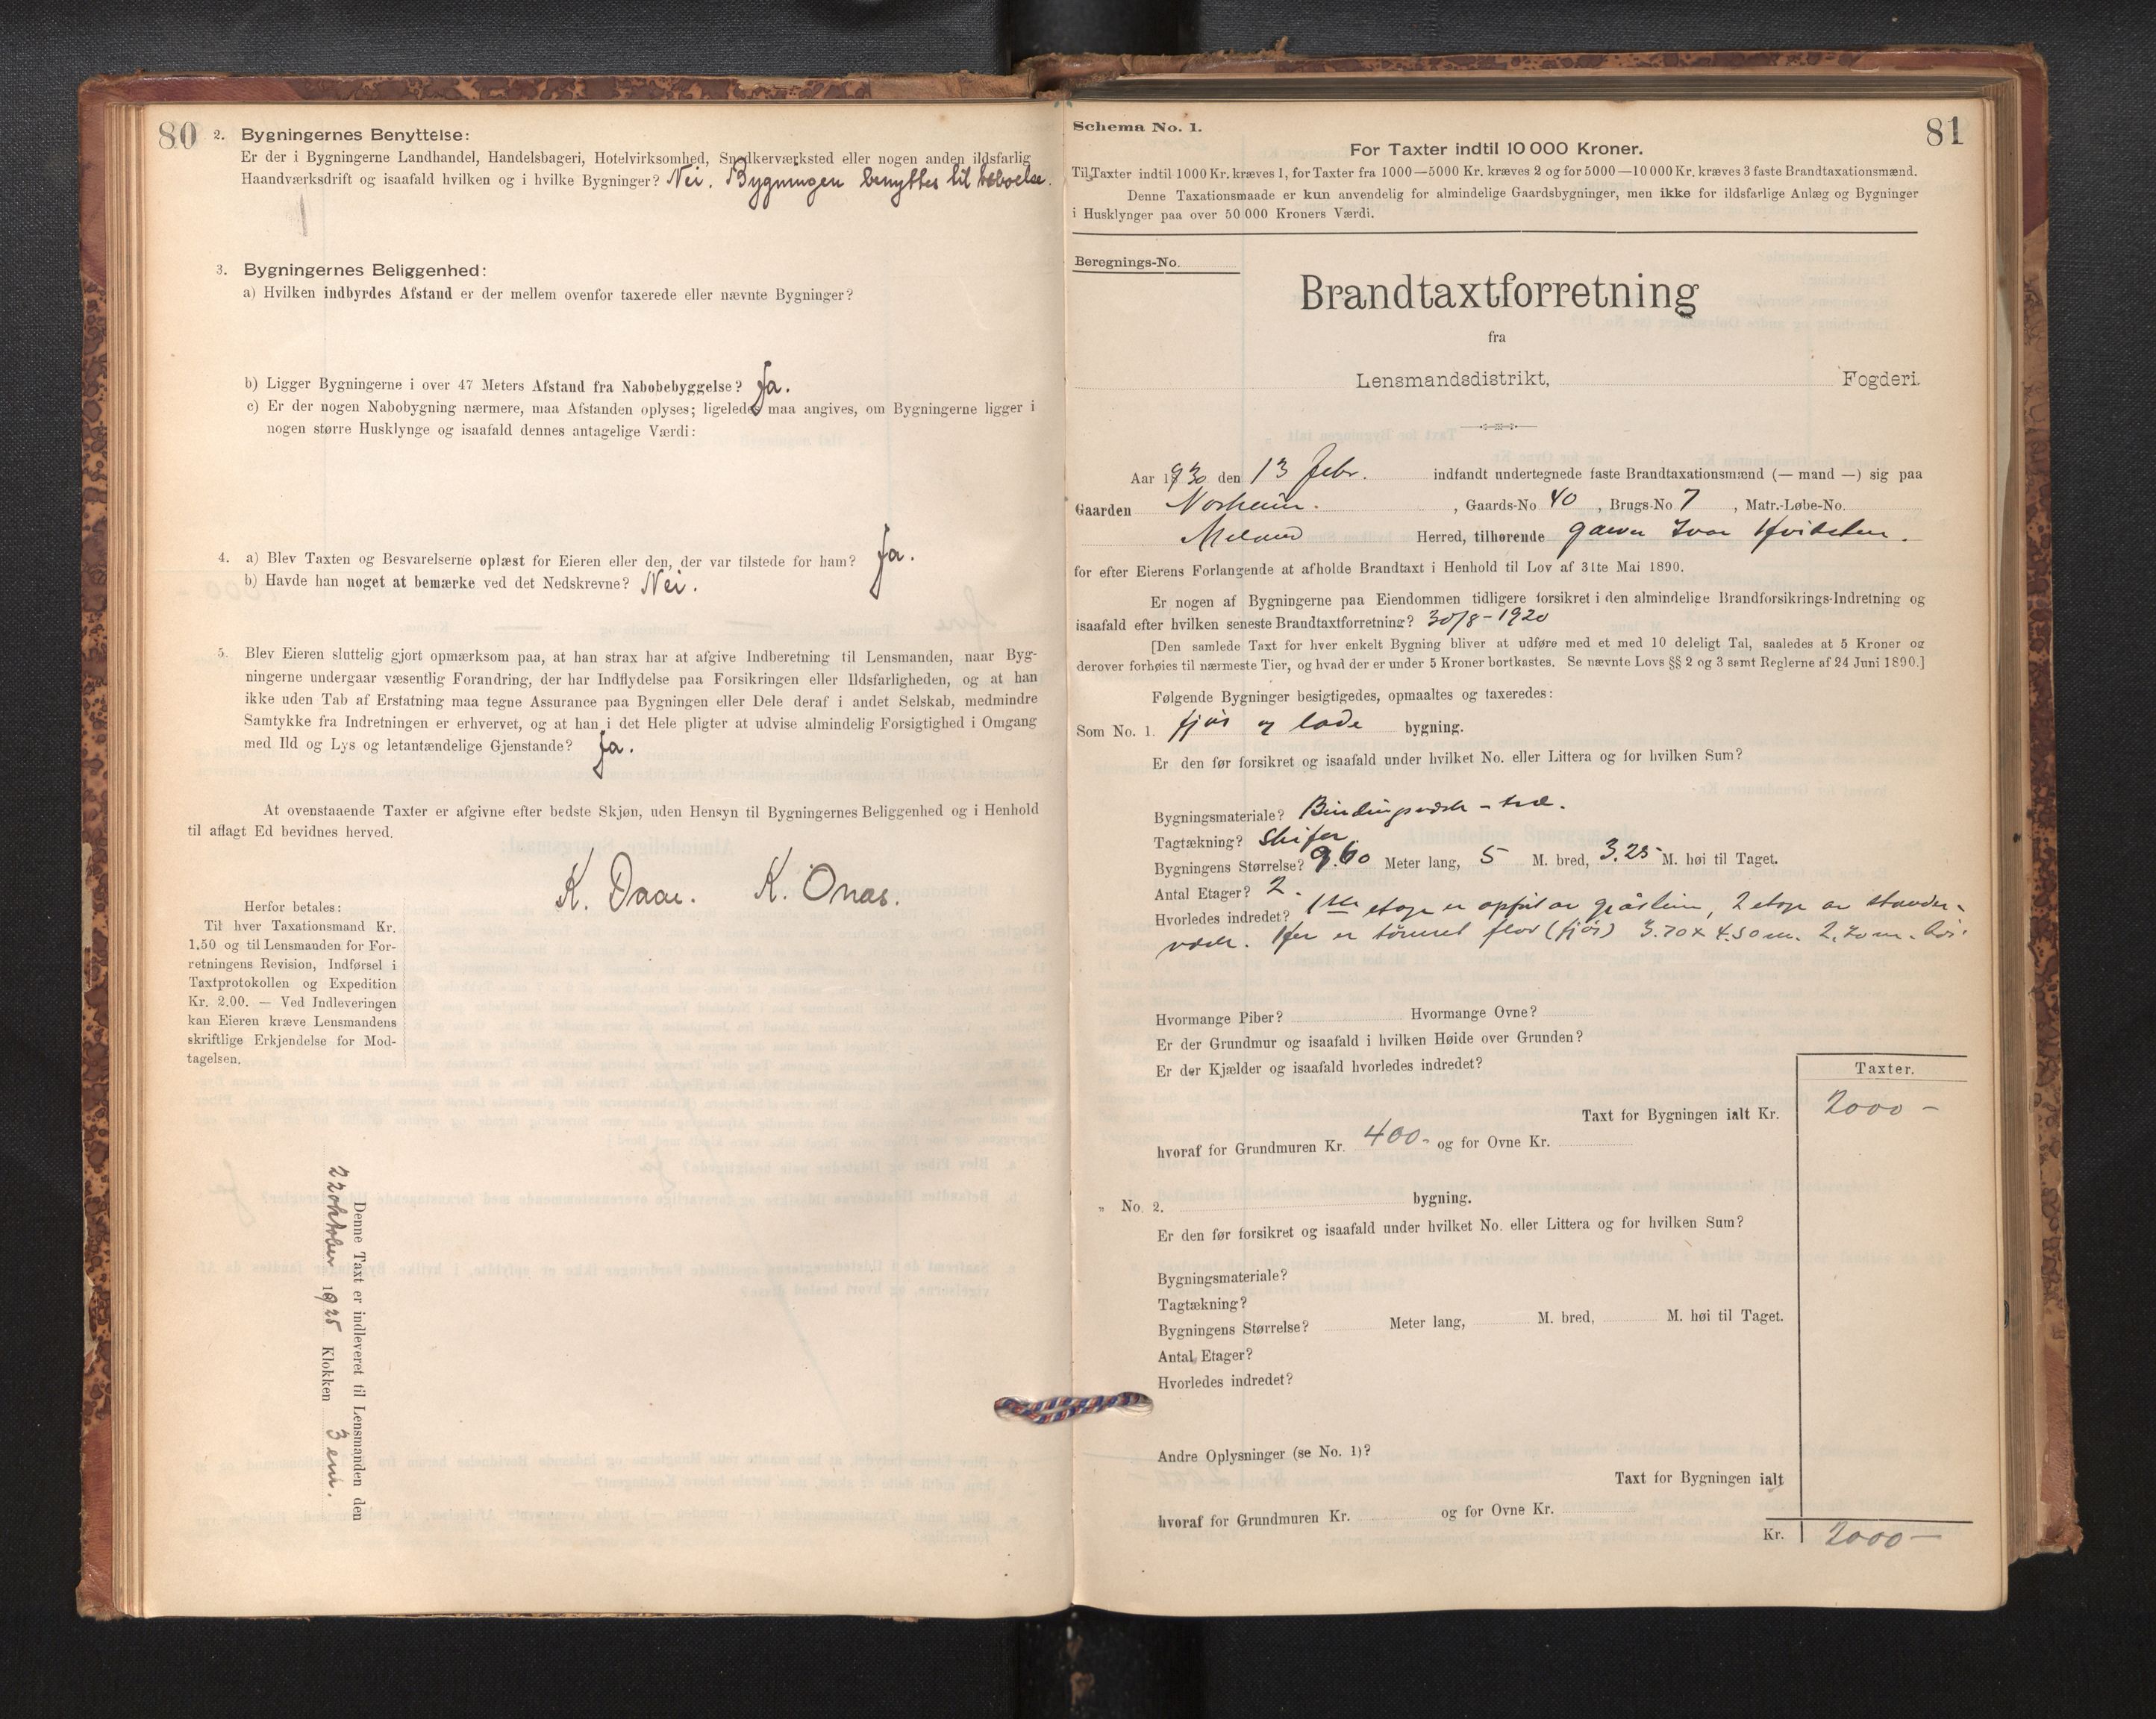 80
2. Bygningernes Benyttelse:
Er der i Bygningerne Landhandel, Handelsbageri, Hotelvirksomhed, Snedkerværksted eller nogen anden ildsfarlig
Haandværksdrift og isaafald hvilken og i hvilke Bygninger? Nei. Bygningen benyttes til beboelse.
3. Bygningernes Beliggenhed:
a) Hvilken indbyrdes Afstand er der mellem ovenfor taxerede eller nævnte Bygninger?
b) Ligger Bygningerne i over 47 Meters Afstand fra Nabobebyggelse? Ja.
c) Er der nogen Nabobygning nærmere, maa Afstanden oplyses; ligeledes maa angives, om Bygningerne ligger i
nogen større Husklynge og isaafald dennes antagelige Værdi:
4. a) Blev Taxten og Besvarelserne oplæst for Eieren eller den, der var tilstede for ham? Ja.
b) Havde han noget at bemærke ved det Nedskrevne? Nei.
5. Blev Eieren sluttelig gjort opmærksom paa, at han strax har at afgive Indberetning til Lensmanden, naar Byg-
ningerne undergaar væsentlig Forandring, der har Indflydelse paa Forsikringen eller Ildsfarligheden, og at han
ikke uden Tab af Erstatning maa tegne Assurance paa Bygningen eller Dele deraf i andet Selskab, medmindre
Samtykke fra Indretningen er erhvervet, og at han i det Hele pligter at udvise almindelig Forsigtighed i Omgang
med Ild og Lys og letantændelige Gjenstande? Ja.
At ovenstaaende Taxter er afgivne efter bedste Skjøn, uden Hensyn til Bygningernes Beliggenhed og i Henhold
til aflagt Ed bevidnes herved.
K. Daae. K. Onas.
Herfor betales:
Til hver Taxationsmand Kr.
1.50 og til Lensmanden for For-
retningens Revision, Indførsel i
Taxtprotokollen og Expedition
Kr. 2.00. — Ved Indleveringen
kan Eieren kræve Lensmandens
skriftlige Erkjendelse for Mod-
tagelsen.
Denne Taxt er indleveret til Lensmanden den
22 oktober 1925 Klokken 3 em.
81
Schema No. 1.
For Taxter indtil 10 000 Kroner.
Til Taxter indtil 1000 Kr. kræves 1, for Taxter fra 1000—5000 Kr. kræves 2 og for 5000—10 000 Kr. kræves 3 faste Brandtaxationsmænd.
Denne Taxationsmaade er kun anvendelig for almindelige Gaardsbygninger, men ikke for ildsfarlige Anlæg og Bygninger
i Husklynger paa over 50 000 Kroners Værdi.
Beregnings-No.
Brandtaxtforretning
fra
Lensmandsdistrikt, Fogderi.
Aar 1930 den 13 Febr. indfandt undertegnede faste Brandtaxationsmænd (— mand —) sig paa
Gaarden Norheim. , Gaards-No 40 , Brugs-No 7 , Matr.-Løbe-No.
Meland Herred, tilhørende Ivar Hvidsten.
for efter Eierens Forlangende at afholde Brandtaxt i Henhold til Lov af 31te Mai 1890.
Er nogen af Bygningerne paa Eiendommen tidligere forsikret i den almindelige Brandforsikrings-Indretning og
isaafald efter hvilken seneste Brandtaxtforretning? 30/8-1920
[Den samlede Taxt for hver enkelt Bygning bliver at udføre med et med 10 deleligt Tal, saaledes at 5 Kroner og
derover forhøies til nærmeste Tier, og hvad der er under 5 Kroner bortkastes. Se nævnte Lovs §§ 2 og 3 samt Reglerne af 24 Juni 1890.]
Følgende Bygninger besigtigedes, opmaaltes og taxeredes:
Som No. 1. fjøs og lade bygning.
Er den før forsikret og isaafald under hvilket No. eller Littera og for hvilken Sum?
Bygningsmateriale? Bindingsverk - træ.
Tagtækning? Skifer.
Bygningens Størrelse? 9.60 Meter lang, 5 M. bred, 3.25 M. høi til Taget.
Antal Etager? 2.
Hvorledes indredet? 1ste etage er opført av gråstein, 2 etage av stander-
verk. Her er tømret flor (fjøs) 3.70 x 4.50 m. 2.20 m. høi.
Hvormange Piber? Hvormange Ovne?
Er der Grundmur og isaafald i hvilken Høide over Grunden?
Er der Kjælder og isaafald hvorledes indredet?
Taxter.
Taxt for Bygningen ialt Kr. 2000 -
hvoraf for Grundmuren Kr. 400- og for Ovne Kr.
„ No. 2. bygning.
Er den før forsikret og isaafald under hvilket No. eller Littera og for hvilken Sum?
Bygningsmateriale?
Tagtækning?
Bygningens Størrelse? Meter lang, M. bred, M. høi til Taget.
Antal Etager?
Hvorledes indredet?
Andre Oplysninger (se No. 1)?
Taxt for Bygningen ialt
hvoraf for Grundmuren Kr. og for Ovne Kr.
Kr. 2000 -